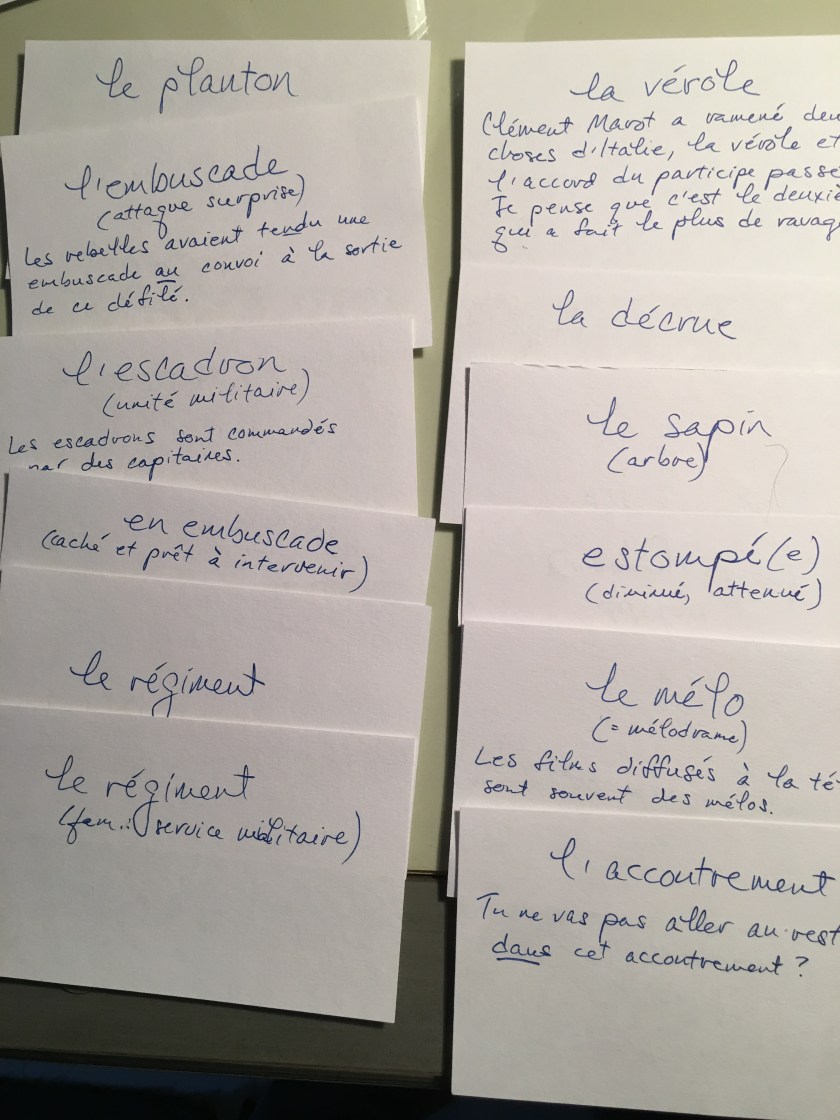 le planton
l'embuscade
(attaque surprise)
Les rebelles avaient tendu une
embuscade au convoi à la sortie
de ce défilé.
l'escadron
(unité militaire)
Les escadrons sont commandés
par des capitaines.
en embuscade
(caché et prêt à intervenir)
le régiment
le régiment
(fam.: service militaire)
la vérole
Clément Marot a ramené deu
choses d'Italie, la vérole et
l'accord du participe passé
Je pense que c'est le deuxiè
qui a fait le plus de ravag
la décrue
le sapin
(arbre)
estompé(e)
(diminué, atténué)
le mélo
(= mélodrame)
Les films diffusés à la té-
sont souvent des mélos.
l'accoutrement
Tu ne vas pas aller au rest
dans cet accoutrement ?